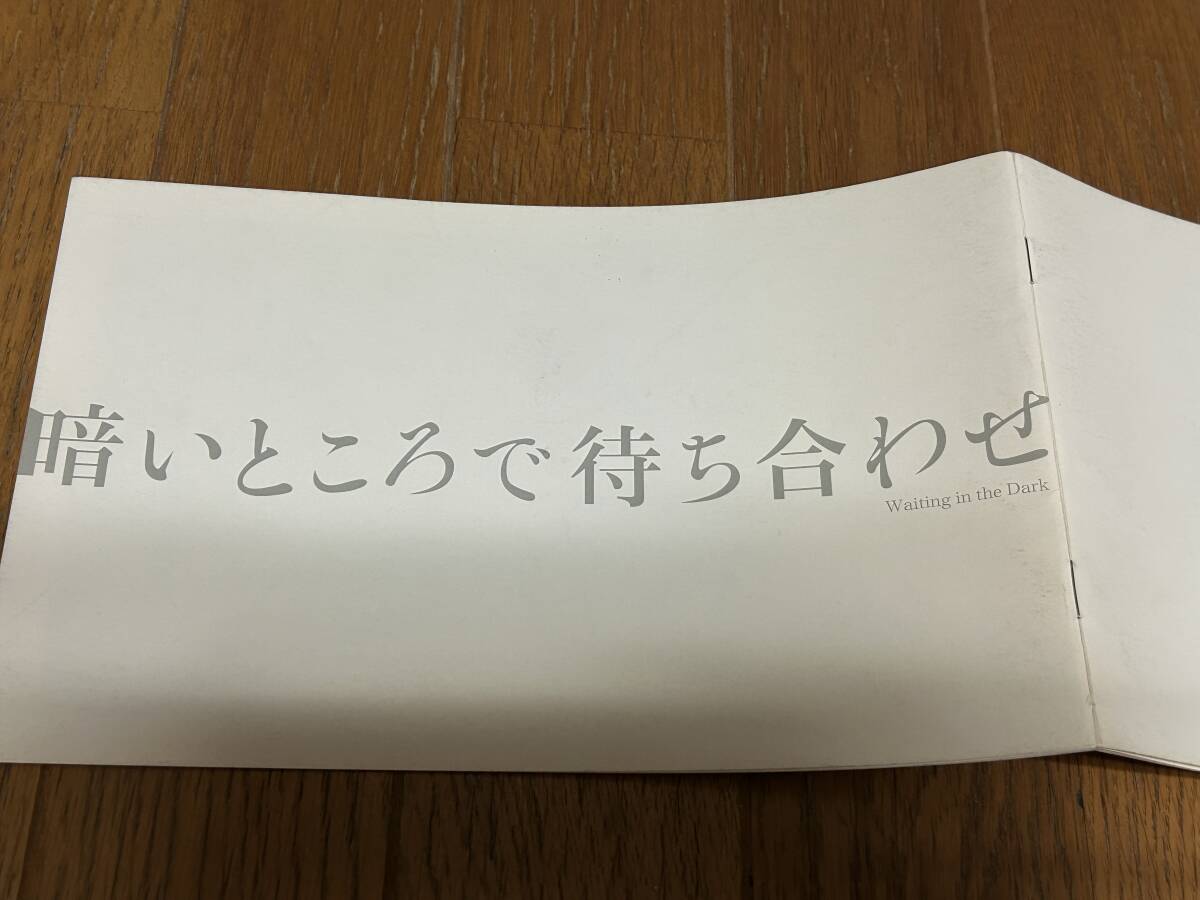 暗いところで待ち合わせ
Waiting in the Dark